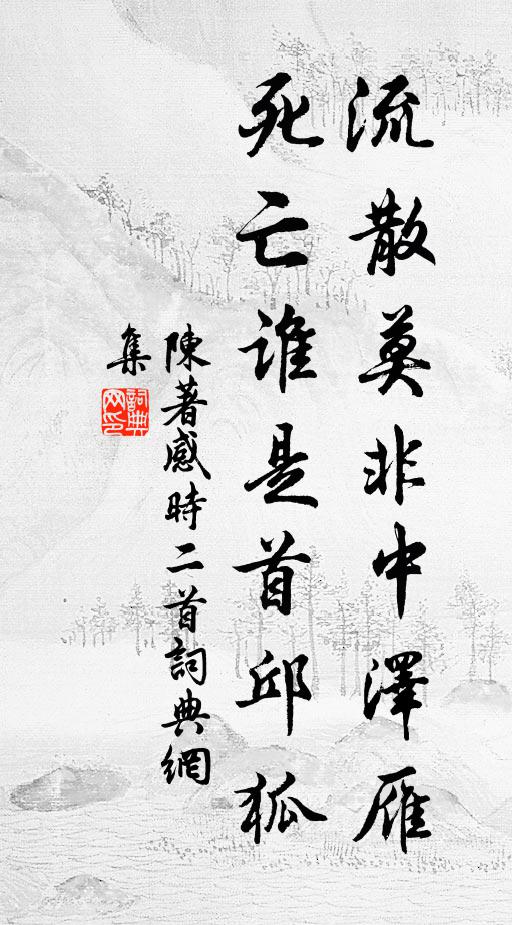 流散莫非中澤雁
死亡谁是首邱狐
陳著感時二首詞典網
集
詞典網印